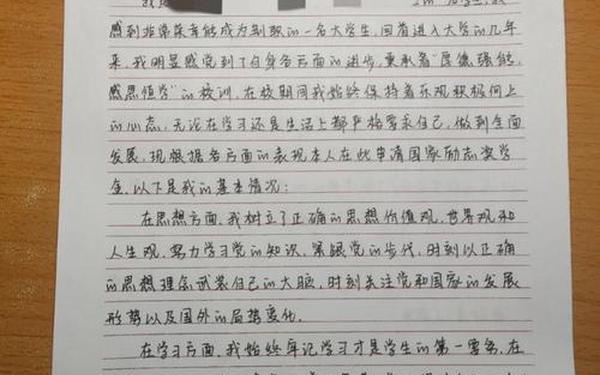 感到非常荣幸能成为制职的一名大学生,回首进入大学的几年
来,我明显感觉到了自身各方面的进步,秉承着“厚德强能,
感恩恒学”的校训,在校期间我始终保持着乐观积极向上
的心态,无论在学习还是生活上都严格要求自己,做到全面
发展,现根据各方面的表现本人在此申请国家励志奖学
金,以下是我的基本情况:
在思想方面,我树立了正确的思想价值观,世界观和
人生观,努力学习党的知识,紧跟党的步伐,时刻以正确
的思想理念武装自己的大脑,时刻关注党和国家的发展
形势以及国外的局势变化.
在学习方面,我始终牢记学习才是学生的第一要务,在